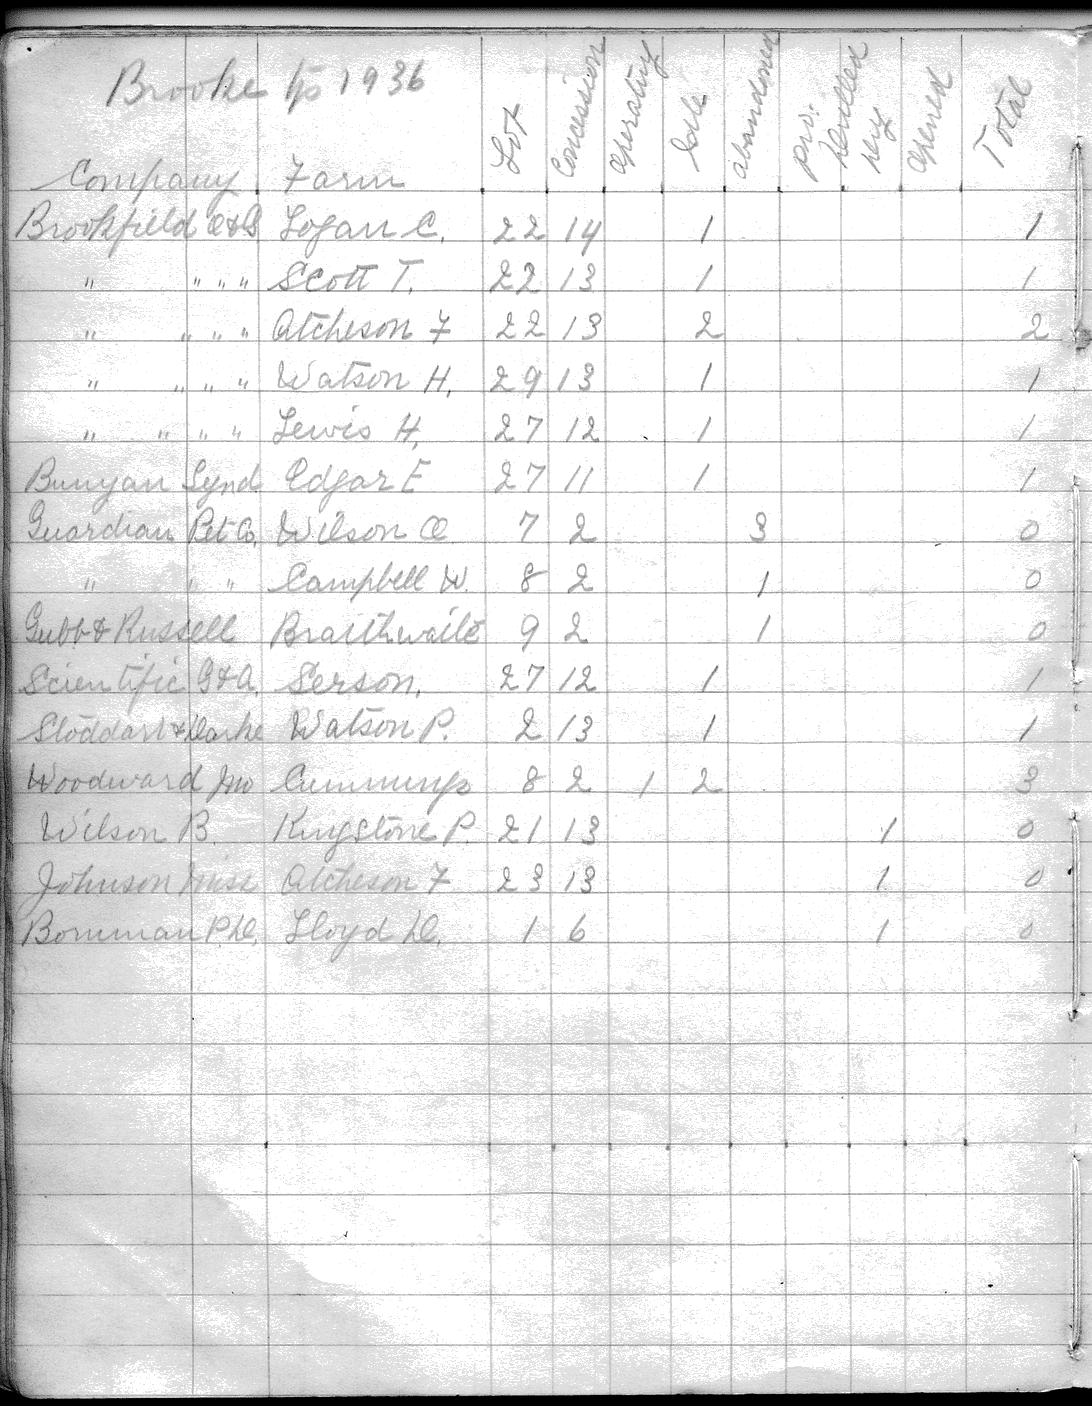 Brooke Tp 1936
Company Farm Lot Concession operating Idle abandoned prv. drilled dry opened Total
Brookfield O&G Logan C. 22 14 1 1
" " " " Scott T. 22 13 1 1
" " " " Atcheson F 22 13 2 2
" " " " Watson H. 29 13 1 1
" " " " Lewis H. 27 12 1 1
Bunyan Synd. Edgar E 27 11 1 1
Guardian Pet Co. Wilson O 7 2 3 0
" " " Campbell W. 8 2 1 0
Gubb & Russell Braithwaite 9 2 1 0
Scientific G&O. Serson. 27 12 1 1
Stoddart & Darke Watson P. 2 13 1 1
Woodward Jno Cummings 8 2 1 2 3
Wilson B. Kingstone P. 21 13 1 0
Johnson Atcheson F 23 13 1 0
Bowman P.D. Lloyd D. 1 6 1 0